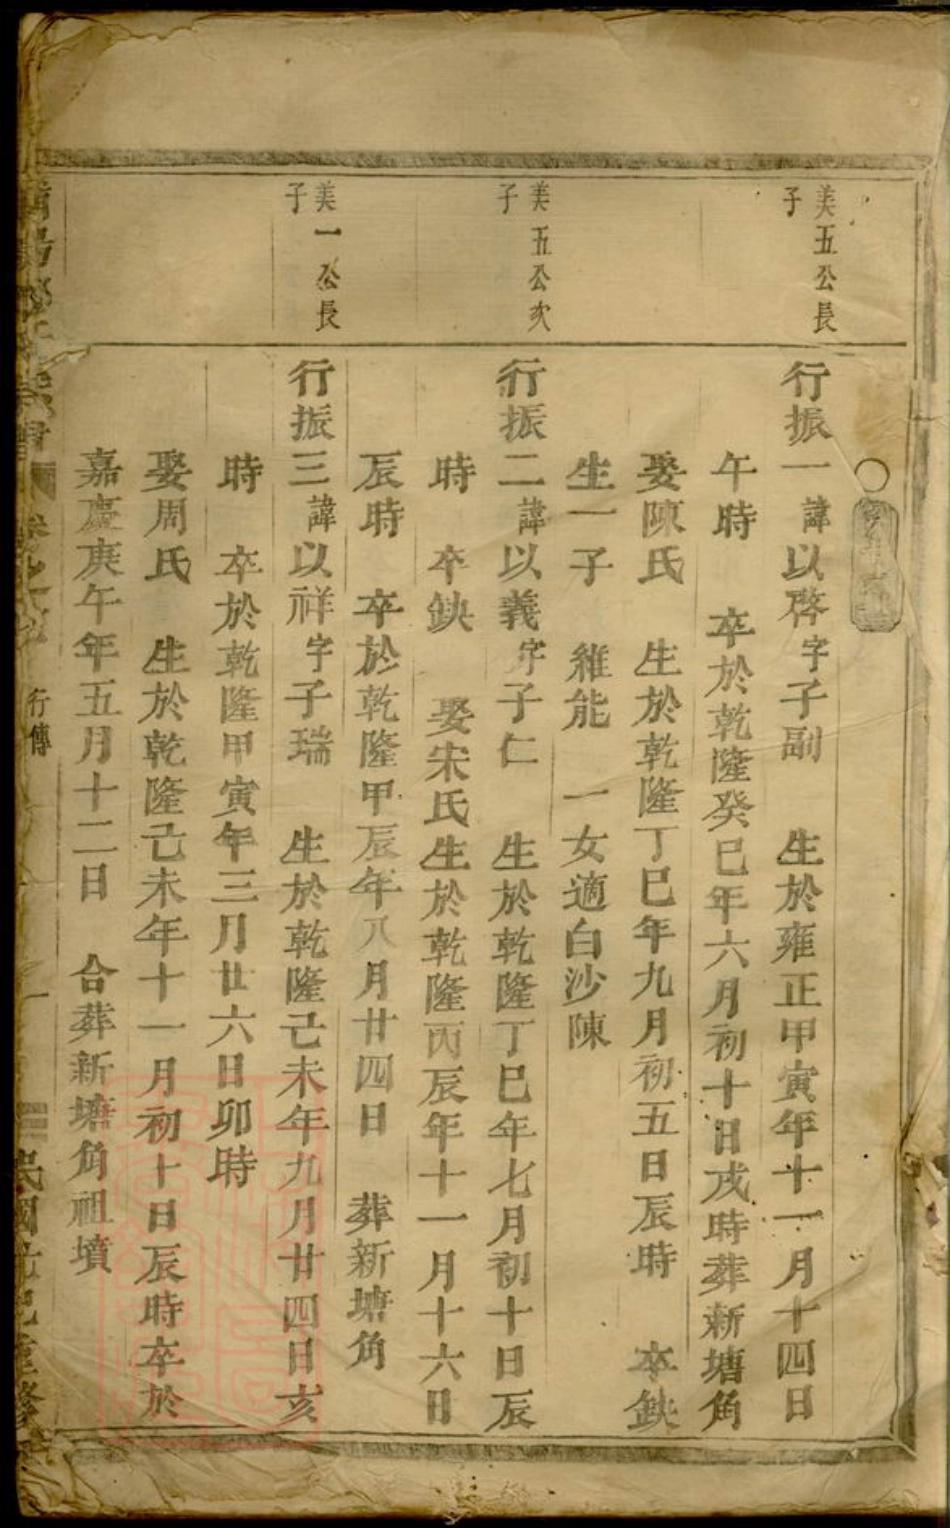 美五公長
子
行振一諱以啓字子副　生於雍正甲寅年十一月十四日
午時　卒於乾隆癸巳年六月初十日戌時葬新塘角
娶陳氏　生於乾隆丁巳年九月初五日辰時　卒缺
生一子　維能　一女適白沙陳
美五公次
子
行振二諱以義字子仁　生於乾隆丁巳年七月初十日辰
時　卒缺　娶宋氏生於乾隆丙辰年十一月十六日
辰時　卒於乾隆甲辰年八月廿四日　葬新塘角
美一公長
子
行振三諱以祥字子瑞　生於乾隆己未年九月廿四日亥
時　卒於乾隆甲寅年三月廿六日卯時
娶周氏　生於乾隆己未年十一月初十日辰時卒於
嘉慶庚午年五月十二日　合葬新塘角祖墳
行傳
一
民國
重修